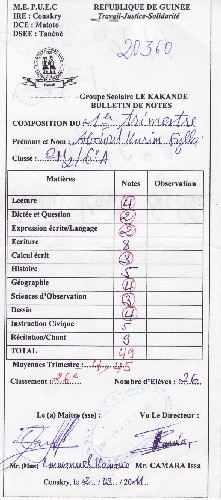 M.E. P.U.E.C REPUBLIQUE DE GUINEE
IRE : Conakry Travail-Justice-Solidarité
DCE : Matoto
DSEE : Tanéné
20360
Groupe Scolaire LE KAKANDE
BULLETIN DE NOTES
COMPOSITION DU 1er trimestre
Prénoms et Nom : Abdoul Karim Sylla
Classe : CM2/6è A
Matières Notes Observation
Lecture 4
Dictée et Question 2
Expression écrite/Langage 2
Ecriture 8
Calcul écrit 3
Histoire 5
Géographie 4
Sciences d'Observation 3
Dessin 4
Instruction Civique 5
Récitation/Chant 9
TOTAL 49
Moyennes Trimestre : 4,45
Classement : 26è Nombre d'Elèves : 26
Le (a) Maître (sse) : Vu Le Directeur :
Mr. (Mme) Emmanuel Mr. CAMARA Issa
Conakry, le 2 /03 /2011